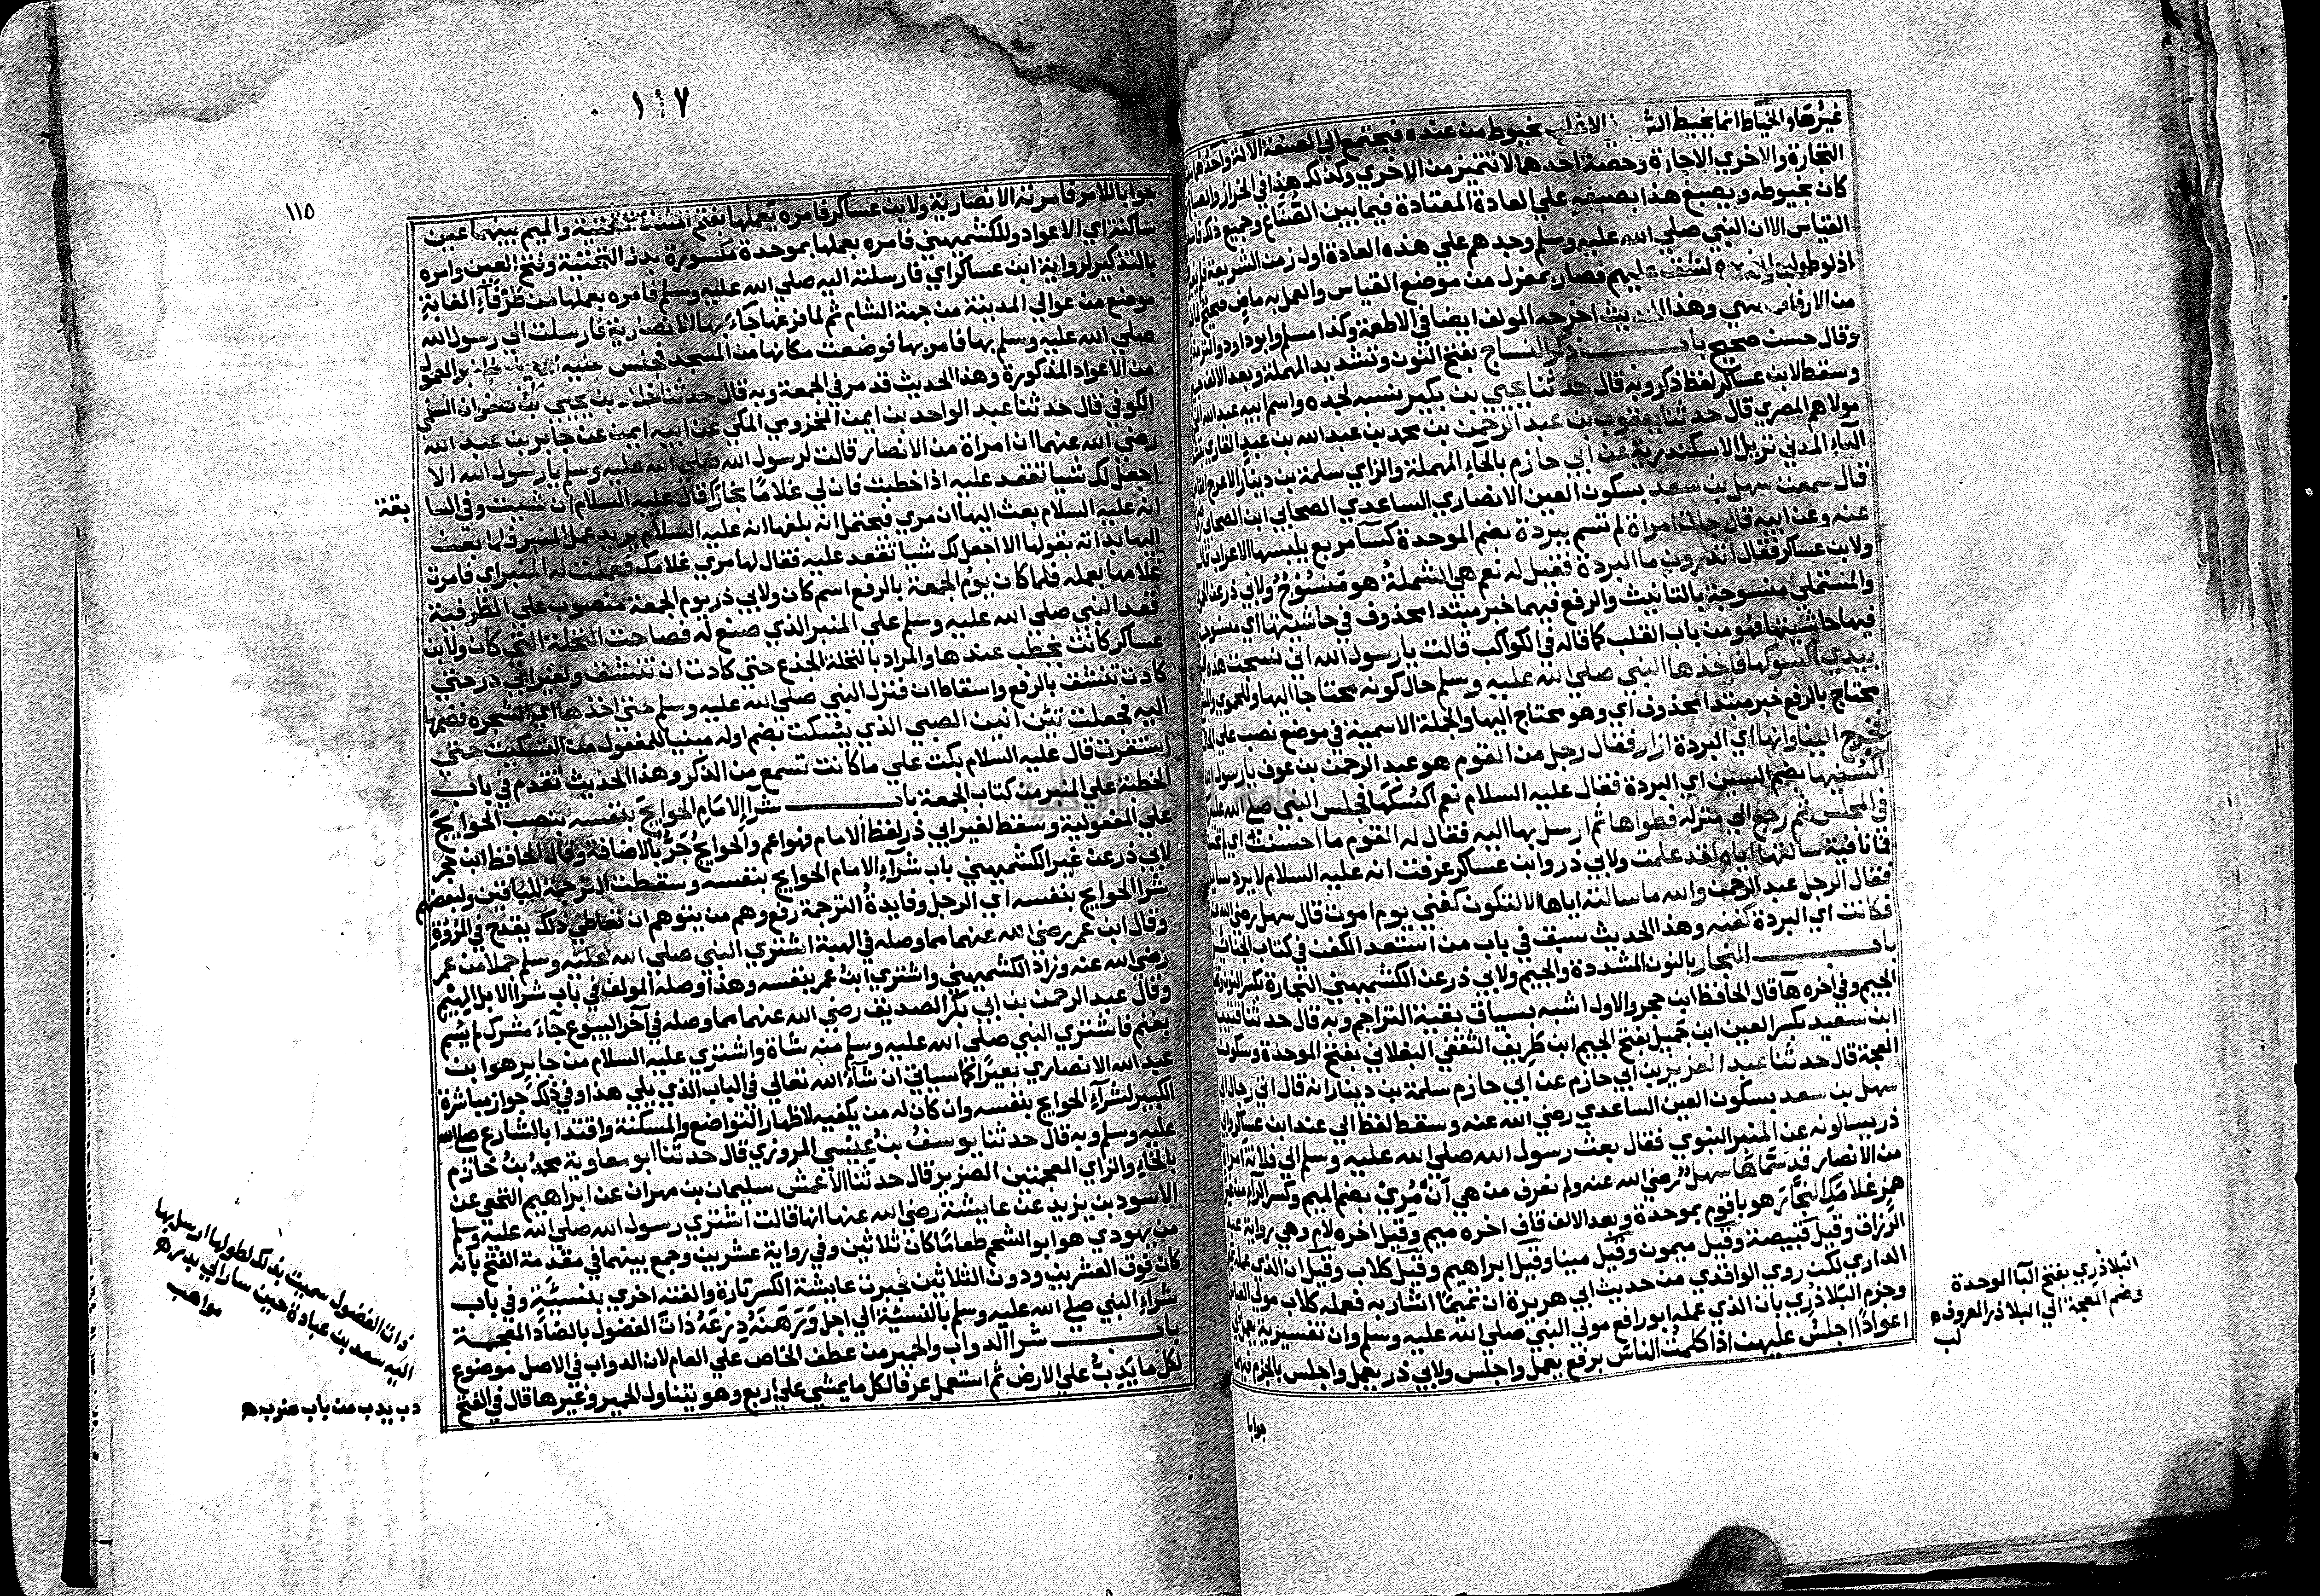 غيرها والخياط انما يخيط الثوب في الاغلب بخيوط من عنده فيجتمع الي الصنعة الالة واحدهما
التجارة والاخري الاجارة وحصة احدهما لا تتميز من الاخري وكذلك هذا في الخراز والصباغ
كان بخيوطه ويصبغ هذا بصبغه علي العادة المعتادة فيما بين الصناع وجميع ذلك
القياس الا ان النبي صلي الله عليه وسلم وجدهم علي هذه العادة اول زمن الشريعة
اذ لو طولبوا لشق عليهم فصار بمعزل من موضع القياس والعمل به ماض صحيح
من الارفاق وهذا الحديث اخرجه المولف ايضا في الاطعمة وكذا مسلم وابو داود والترمذي
وقال حسن صحيح باب ذكر النساج بفتح النون وتشديد المهملة وبعد الالف جيم
وسقط لابن عساكر لفظ ذكر وبه قال حدثنا يحيي بن بكير نسبه لجده واسم ابيه عبد الله
مولاهم المصري قال حدثنا يعقوب بن عبد الرحمن بن محمد بن عبد الله بن عبد القاري
الياء المدني نزيل الاسكندرية عن ابي حازم بالحاء المهملة والزاي سلمة بن دينار الاعرج
قال سمعت سهل بن سعد بسكون العين الانصاري الساعدي الصحابي ابن الصحابي
عنه وعن ابيه قال جات امراة لم تسم ببردة بضم الموحدة كسآ مربع يلبسها الاعراب قال
ولابن عساكر فقال اتدرون ما البردة فقيل له نعم هي الشملة هو منسوج ولابي ذر عن
والمستملي منسوجة بالتانيث والرفع فيهما خبر مبتدا محذوف في حاشيتها اي منسوج
فيها حاشيتها فهو من باب القلب كما قاله في الكواكب قالت يارسول الله اني نسجت هذه
بيدي اكسوكها فاخذها النبي صلي الله عليه وسلم حال كونه محتاجا اليها وللحموي
محتاج بالرفع خبر مبتدا محذوف اي وهو محتاج اليها والجملة الاسمية في موضع نصب علي الحال
فخرج الينا وانها اي البردة ازار فقال رجل من القوم هو عبد الرحمن بن عوف يارسول الله
اكسنيها بضم السين اي البردة فقال عليه السلام نعم اكسكها فجلس النبي صلي الله عليه
في المجلس ثم رجع الي منزله فطواها ثم ارسل بها اليه فقال له القوم ما احسنت اي
فما نافية سالتها اياه لقد علمت ولابي ذر وابن عساكر عرفت انه عليه السلام لا يرد سائلا
فقال الرجل عبد الرحمن والله ما سالته اياها الا لتكون كفني يوم اموت قال سهل رضي الله عنه
فكانت اي البردة كفنه وهذا الحديث سبق في باب من استعد الكفن في كتاب الجنائز
باب النجار بالنون المشددة والجيم ولابي ذر عن الكشميهني النجارة بكسر النون
الجيم وفي اخره هآ قال الحافظ ابن حجر والاول اشبه بسياق بقية التراجم وبه قال حدثنا قتيبة
ابن سعيد بكسر العين ابن جميل بفتح الجيم ابن طريف الثقفي البغلاني بفتح الموحدة وسكون
المعجمة قال حدثنا عبد العزيز بن ابي حازم عن ابي حازم سلمة بن دينار انه قال اتي رجال الي
سهل بن سعد بسكون العين الساعدي رضي الله عنه وسقط لفظ الي عند ابن عساكر وابي
ذر يسالونه عن المنبر النبوي فقال بعث رسول الله صلي الله عليه وسلم الي فلانة امراة
من الانصار قد سماها سهل رضي الله عنه ولم نعرف من هي ان مري بضم الميم وكسر الراء من غير
همز غلامك النجار هو باقوم بموحدة وبعد الالف قاف اخره ميم وقيل اخره لام وهي رواية عبد
الرزاق وقيل قبيصة وقيل ميمون وقيل مينا وقيل ابراهيم وقيل كلاب وقيل ان الذي عمله تميم
الداري لكن روي الواقدي من حديث ابي هريرة ان تميما اشار به فعمله كلاب مولي العباس
وجزم البلاذري بان الذي عمله ابو رافع مولي النبي صلي الله عليه وسلم وان تفسيرية يعمل لي
اعوادا اجلس عليهن اذا كلمت الناس برفع يعمل واجلس ولابي ذر يعمل واجلس بالجزم فيهما
جوابا
البلاذري بفتح البآ الموحدة
وضم المعجمة الي البلاذر المعروف ه
لب
١١٧
١١٥
جوابا للامر فامرته الانصارية ولابن عساكر فامره يعملها بفتح المثناة التحتية والميم بينهما عين
ساكنة اي الاعواد وللكشميهني فامره بعملها بموحدة مكسورة بدل التحتية وفتح العين وامره
بالتذكير لرواية ابن عساكر اي فارسلته اليه صلي الله عليه وسلم فامره بعملها من طرفاء الغابة
موضع من عوالي المدينة من جهة الشام ثم لما فرغها جاء بها الانصارية فارسلت الي رسول الله
صلي الله عليه وسلم بها فامر بها فوضعت مكانها من المسجد فجلس عليه
من الاعواد المذكورة وهذا الحديث قد مر في الجمعة وبه قال حدثنا خلاد بن يحيي بن صفوان السلمي
الكوفي قال حدثنا عبد الواحد بن ايمن المخزومي المكي عن ابيه ايمن عن جابر بن عبد الله
رضي الله عنهما ان امراة من الانصار قالت لرسول الله صلي الله عليه وسلم يارسول الله الا
اجعل لك شيا تقعد عليه اذا خطبت فان لي غلاما نجارا قال عليه السلام ان شيت وفي السا
بقة
انه عليه السلام بعث اليها ان مري فيحتمل انه بلغها انه عليه السلام يريد عمل المنبر فلما بعث
اليها بداته بقولها الا اجعل لك شيا تقعد عليه فقال لها مري غلامك فعملت له المنبر اي فامرت
غلامها بعمله فلما كان يوم الجمعة بالرفع اسم كان ولابي ذر يوم الجمعة منصوب علي الظرفية
قعد النبي صلي الله عليه وسلم علي المنبر الذي صنع له فصاحت النخلة التي كان ولابن
عساكر كانت يخطب عندها والمراد بالنخلة الجذع حتي كادت ان تنشق ولغير ابي ذر حتي
كادت تنشق بالرفع واسقاط ان فنزل النبي صلي الله عليه وسلم حتي اخذها اي الشجرة فضمها
اليه فجعلت تئن انين الصبي الذي يسكت بضم اوله مبنيا للمفعول من التسكيت حتي
استقرت قال عليه السلام بكت علي ما كانت تسمع من الذكر وهذا الحديث تقدم في باب
الخطبة علي المنبر من كتاب الجمعة باب شرآء الامام الحوايج بنفسه بنصب الحوايج
علي المفعولية وسقط لغير ابي ذر لفظ الامام فهو اعم والحوايج جر بالاضافة وقال الحافظ ابن حجر
لابي ذر عن غير الكشميهني باب شرآء الامام الحوايج بنفسه وسقطت الترجمة للباقين ولبعضهم
شرا الحوايج بنفسه اي الرجل وفايدة الترجمة رفع وهم من يتوهم ان تعاطي ذلك يقدح في المروة
وقال ابن عمر رضي الله عنهما مما وصله في الهبة اشتري النبي صلي الله عليه وسلم جملا من عمر
رضي الله عنه وزاد الكشميهني واشتري ابن عمر بنفسه وهذا وصله المولف في باب شرا الابل الهيم
وقال عبد الرحمن بن ابي بكر الصديق رضي الله عنهما مما وصله في آخر البيوع جاء مشرك لم يسم
بغنم فاشتري النبي صلي الله عليه وسلم منه شاة واشتري عليه السلام من جابر هو ابن
عبد الله الانصاري بعيرا كما سياتي ان شاء الله تعالي في الباب الذي يلي هذا وفي ذلك جواز مباشرة
الكبير لشرآء الحوايج بنفسه وان كان له من يكفيه لاظهار التواضع والمسكنة واقتدا بالشارع صلي الله
عليه وسلم وبه قال حدثنا يوسف بن عيسي المروزي قال حدثنا ابو معاوية محمد بن خازم
بالخاء والزاي المعجمتين الضرير قال حدثنا الاعمش سليمان بن مهران عن ابراهيم النخعي عن
الاسود بن يزيد عن عايشة رضي الله عنها انها قالت اشتري رسول الله صلي الله عليه وسلم
من يهودي هو ابو الشحم طعاما كان ثلاثين وفي رواية عشرين وجمع بينهما في مقدمة الفتح بانه
كان فوق العشرين ودون الثلاثين فجبرت عايشة الكسر تارة والغته اخري بنسيئة وفي باب
شراء النبي صلي الله عليه وسلم بالنسيئة الي اجل ورهنه درعه ذات الفضول بالضاد المعجمة
باب شرا الدواب والحمير من عطف الخاص علي العام لان الدواب في الاصل موضوع
لكل ما يدب علي الارض ثم استعمل عرفا لكل ما يمشي علي اربع وهو يتناول الحمير وغيرها قال في الفتح
ذات الفضول سميت بذلك لطولها ارسل بها
اليه سعد بن عبادة حين سار الي بدر ه
مواهب
دب يدب من باب ضرب ه